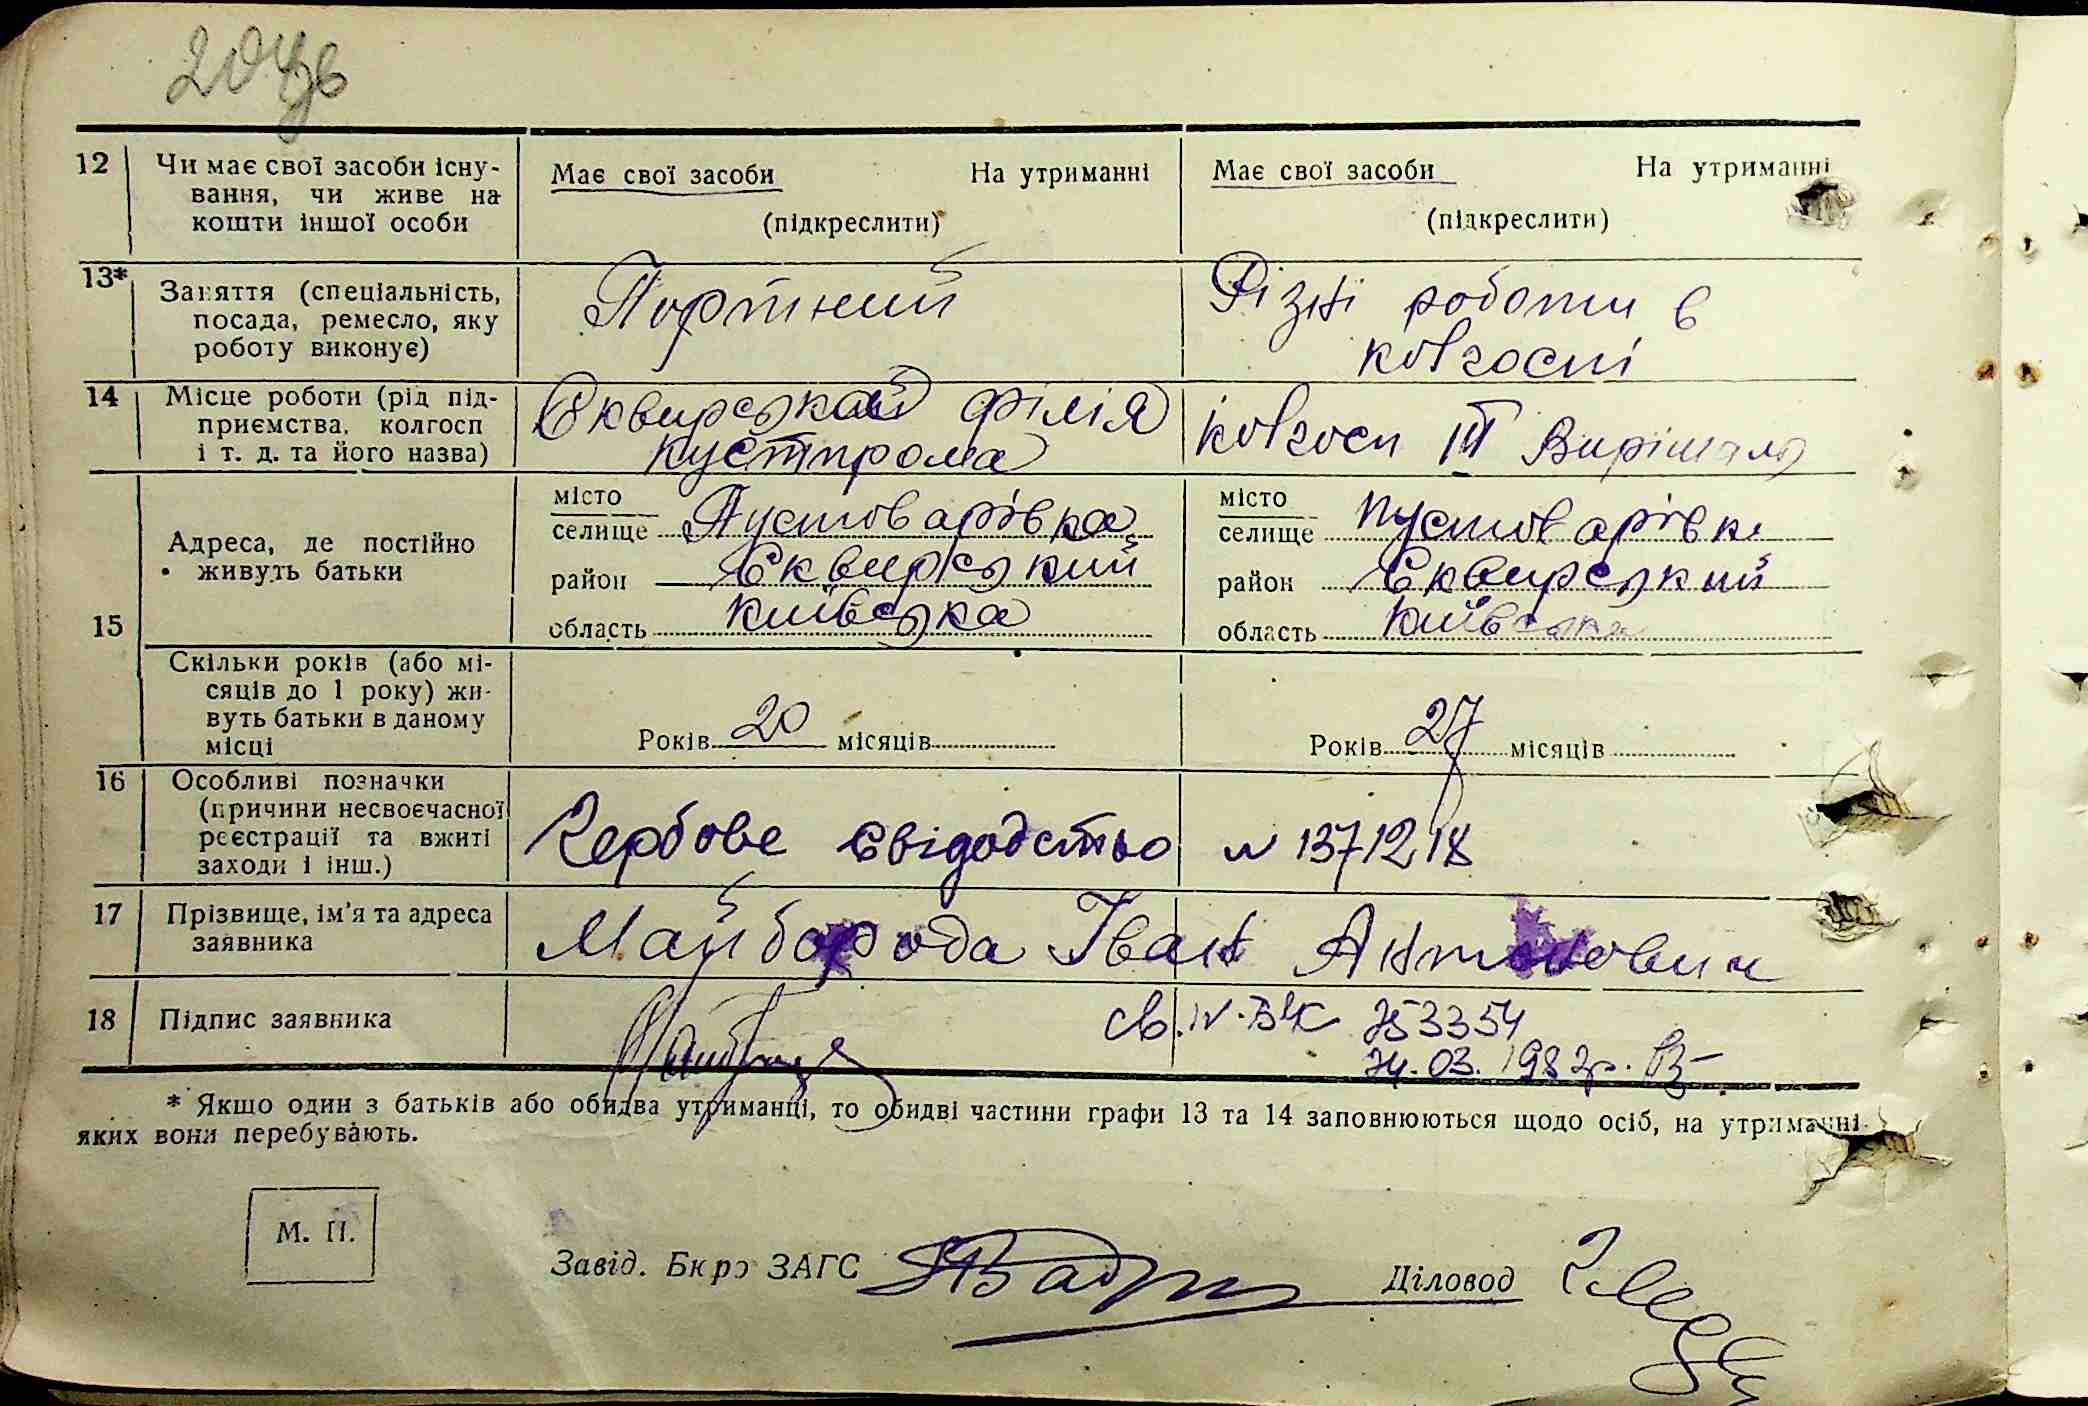 204зв
12 Чи має свої засоби існу-
вання, чи живе на
кошти іншої особи
Має свої засоби На утриманні
(підкреслити)
Має свої засоби На утриманні
(підкреслити)
13* Заняття (спеціальність,
посада, ремесло, яку
роботу виконує)
Портний
Різні роботи в
колгоспі
14 Місце роботи (рід під-
приємства, колгосп
і т. д. та його назва)
Сквирський філія
кустпрома
колгосп III Вирішаль
15 Адреса, де постійно
живуть батьки
місто
селище Пустоварівка
район Сквирський
область Київська
місто
селище Пустоварівка
район Сквирський
область Київська
Скільки років (або мі-
сяців до 1 року) жи-
вуть батьки в даному
місці
Років 20 місяців
Років 27 місяців
16 Особливі позначки
(причини несвоєчасної
реєстрації та вжиті
заходи і інш.)
Гербове свідодство № 1371218
17 Прізвище, ім'я та адреса
заявника
Майборода Іван Антонович
18 Підпис заявника
св. IV-БК 753354
24.03.1982р.
* Якщо один з батьків або обидва утриманці, то обидві частини графи 13 та 14 заповнюються щодо осіб, на утриманні
яких вони перебувають.
М. П.
Завід. Бюро ЗАГС
Діловод